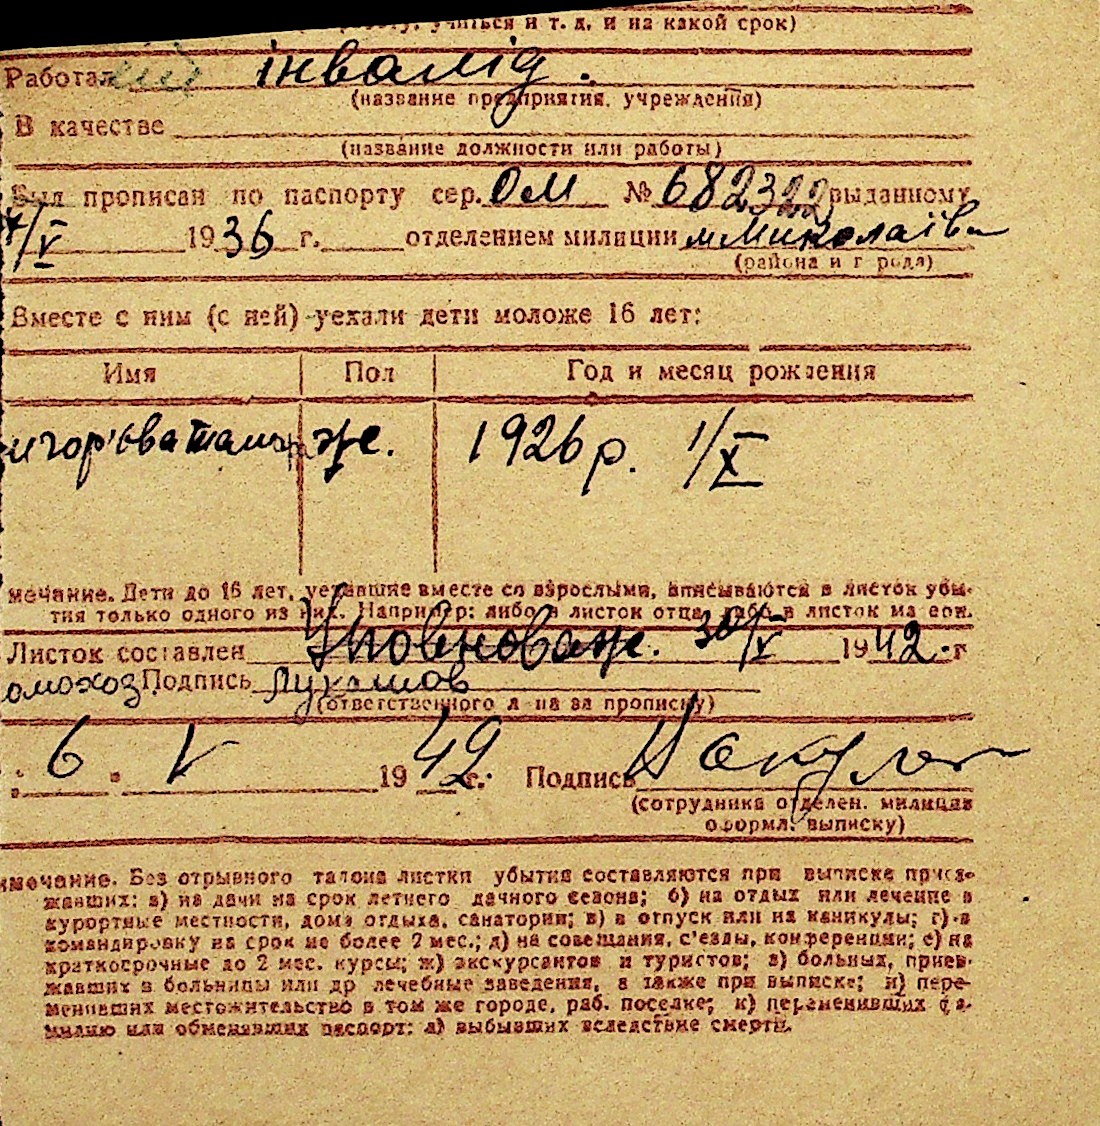 учиться и т. д. и на какой срок)
Работал інвалід.
(название предприятия, учреждения)
В качестве
(название должности или работы)
Был прописан по паспорту сер. ОМ № 682322 выданному
/V 1936 г. отделением милиции м Миколаїва
(района и города)
Вместе с ним (с ней) уехали дети моложе 16 лет:
Имя Пол Год и месяц рождения
игор'єва Тамара Же. 1926 р. 1/X
мечание. Дети до 16 лет, уехавшие вместе со взрослыми, вписываются в листок убы-
тия только одного из них. Например: либо в листок отца, либо в листок матери.
Листок составлен Уповноваж. 30/V 1942 г
омохоз Подпись Лукашов
(ответственного л-ца за прописку)
6 V 1942 г. Подпись
(сотрудника отделен. милиции
оформл. выписку)
имечание. Без отрывного талона листки убытия составляются при выписке приез-
жавших: а) на дачи на срок летнего дачного сезона; б) на отдых или лечение в
курортные местности, дома отдыха, санатории; в) в отпуск или на каникулы; г) в
командировку на срок не более 2 мес.; д) на совещания, с'езды, конференции; е) на
краткосрочные до 2 мес. курсы; ж) экскурсантов и туристов; з) больных, приез-
жавших в больницы или др лечебные заведения, а также при выписке; и) пере-
менивших местожительство в том же городе, раб. поселке; к) переменивших фа-
милию или обменявших паспорт; л) выбывших вследствие смерти.